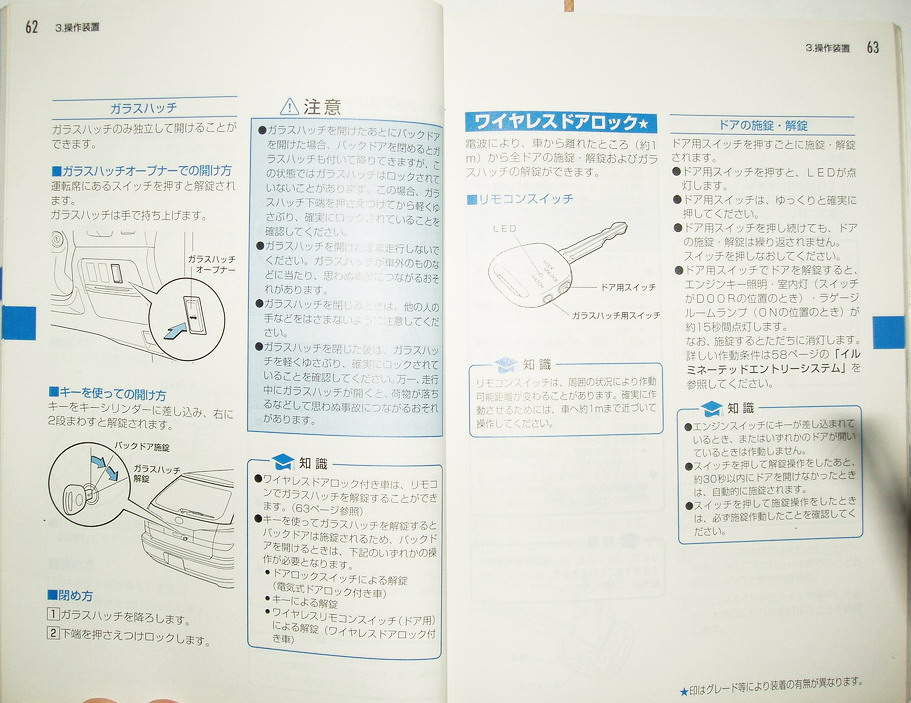 62
3.操作装置
ガラスハッチ
ガラスハッチのみ独立して開けることが
できます。
■ガラスハッチオープナーでの開け方
運転席にあるスイッチを押すと解錠され
ます。
ガラスハッチは手で持ち上げます。
ガラスハッチ
オープナー
■キーを使っての開け方
キーをキーシリンダーに差し込み、右に
2段まわすと解錠されます。
バックドア施錠
ガラスハッチ
解錠
■閉め方
1 ガラスハッチを降ろします。
2 下端を押さえつけロックします。
注意
●ガラスハッチを開けたあとにバックドア
を開けた場合、バックドアを閉めるとガ
ラスハッチも付いて降りてきますが、こ
の状態ではガラスハッチはロックされて
いないことがあります。この場合、ガラ
スハッチ下端を押さえつけてから軽くゆ
さぶり、確実にロックされていることを
確認してください。
●ガラスハッチを開けたまま走行しないで
ください。ガラスハッチが車外のものな
どに当たり、思わぬ事故につながるおそ
れがあります。
●ガラスハッチを閉じるときは、他の人の
手などをはさまないように注意してくだ
さい。
●ガラスハッチを閉じた後は、ガラスハッ
チを軽くゆさぶり、確実にロックされて
いることを確認してください。万一、走行
中にガラスハッチが開くと、荷物が落ち
るなどして思わぬ事故につながるおそれ
があります。
知識
●ワイヤレスドアロック付き車は、リモコ
ンでガラスハッチを解錠することができ
ます。(63ページ参照)
●キーを使ってガラスハッチを解錠すると
バックドアは施錠されるため、バックド
アを開けるときは、下記のいずれかの操
作が必要となります。
●ドアロックスイッチによる解錠
(電気式ドアロック付き車)
●キーによる解錠
●ワイヤレスリモコンスイッチ(ドア用)
による解錠(ワイヤレスドアロック付
き車)
3.操作装置
63
ワイヤレスドアロック★
電波により、車から離れたところ(約1
m)から全ドアの施錠・解錠およびガラ
スハッチの解錠ができます。
■リモコンスイッチ
LED
ドア用スイッチ
ガラスハッチ用スイッチ
知識
リモコンスイッチは、周囲の状況により作動
可能距離が変わることがあります。確実に作
動させるためには、車へ約1mまで近づいて
操作してください。
ドアの施錠・解錠
ドア用スイッチを押すごとに施錠・解錠
されます。
●ドア用スイッチを押すと、LEDが点
灯します。
●ドア用スイッチは、ゆっくりと確実に
押してください。
●ドア用スイッチを押し続けても、ドア
の施錠・解錠は繰り返されません。
スイッチを押しなおしてください。
●ドア用スイッチでドアを解錠すると、
エンジンキー照明・室内灯(スイッチ
がDOORの位置のとき)・ラゲージ
ルームランプ(ONの位置のとき)が
約15秒間点灯します。
なお、施錠するとただちに消灯します。
詳しい作動条件は58ページの「イル
ミネーテッドエントリーシステム」を
参照してください。
知識
●エンジンスイッチにキーが差し込まれて
いるとき、またはいずれかのドアが開い
ているときは作動しません。
●スイッチを押して解錠操作をしたあと、
約30秒以内にドアを開けなかったとき
は、自動的に施錠されます。
●スイッチを押して施錠操作をしたとき
は、必ず施錠作動したことを確認してく
ださい。
★印はグレード等により装着の有無が異なります。